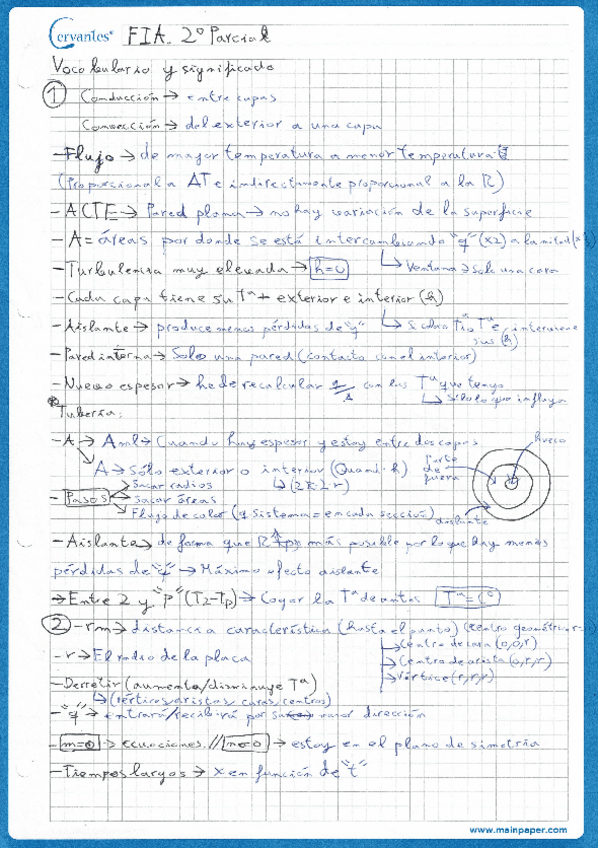 Cervantes® FIA. 2º Parcial
Vocabulario y significado
① Conducción → entre capas
Convección → del exterior a una capa
- Flujo → de mayor temperatura a menor temperatura
(Proporcional a ΔT e indirectamente proporcional a la R)
- A CTE → Pared plana → no hay variación de la superficie
- A = áreas por donde se está intercambiando "q" (x2) a la mitad
- Turbulencia muy elevada → h=0
Ventana → Solo una cara
- Cada capa tiene su Tª + exterior e interior (h)
- Aislante → produce menos pérdidas de "q"
interviene
su (h)
- Pared interna → Solo una pared (contacto con el interior)
- Nuevo espesor → he de recalcular q/A con las Tª que tengo
Sólo lo que influya
Tubería:
- A → Aml → Cuando hay espesor y estoy entre dos capas
hueco
Parte de fuera
A → Sólo exterior o interior (Quand. h)
- Pasos
Sacar radios
Sacar áreas
Flujo de calor (q sistema = en cada sección)
aislante
- Aislante → de forma que R más posible por lo que hay menos
pérdidas de "q" → Máximo efecto aislante
→ Entre 2 y "p" (T2-Tp) → Coger la Tª de antes
② - rm → distancia característica (hasta el punto) (centro geométrico
Centro de cara (0,0,r)
- r → El radio de la placa
Centro de arista (0,r,r)
Vértice (r,r,r)
- Derretir (aumenta/disminuye Tª)
(vértices, aristas, caras, centros)
- "q" → entrará/recibirá por dirección
- m=0 → ecuaciones // n=0 → estoy en el plano de simetría
- Tiempos largos → x en función de "t"
www.mainpaper.com